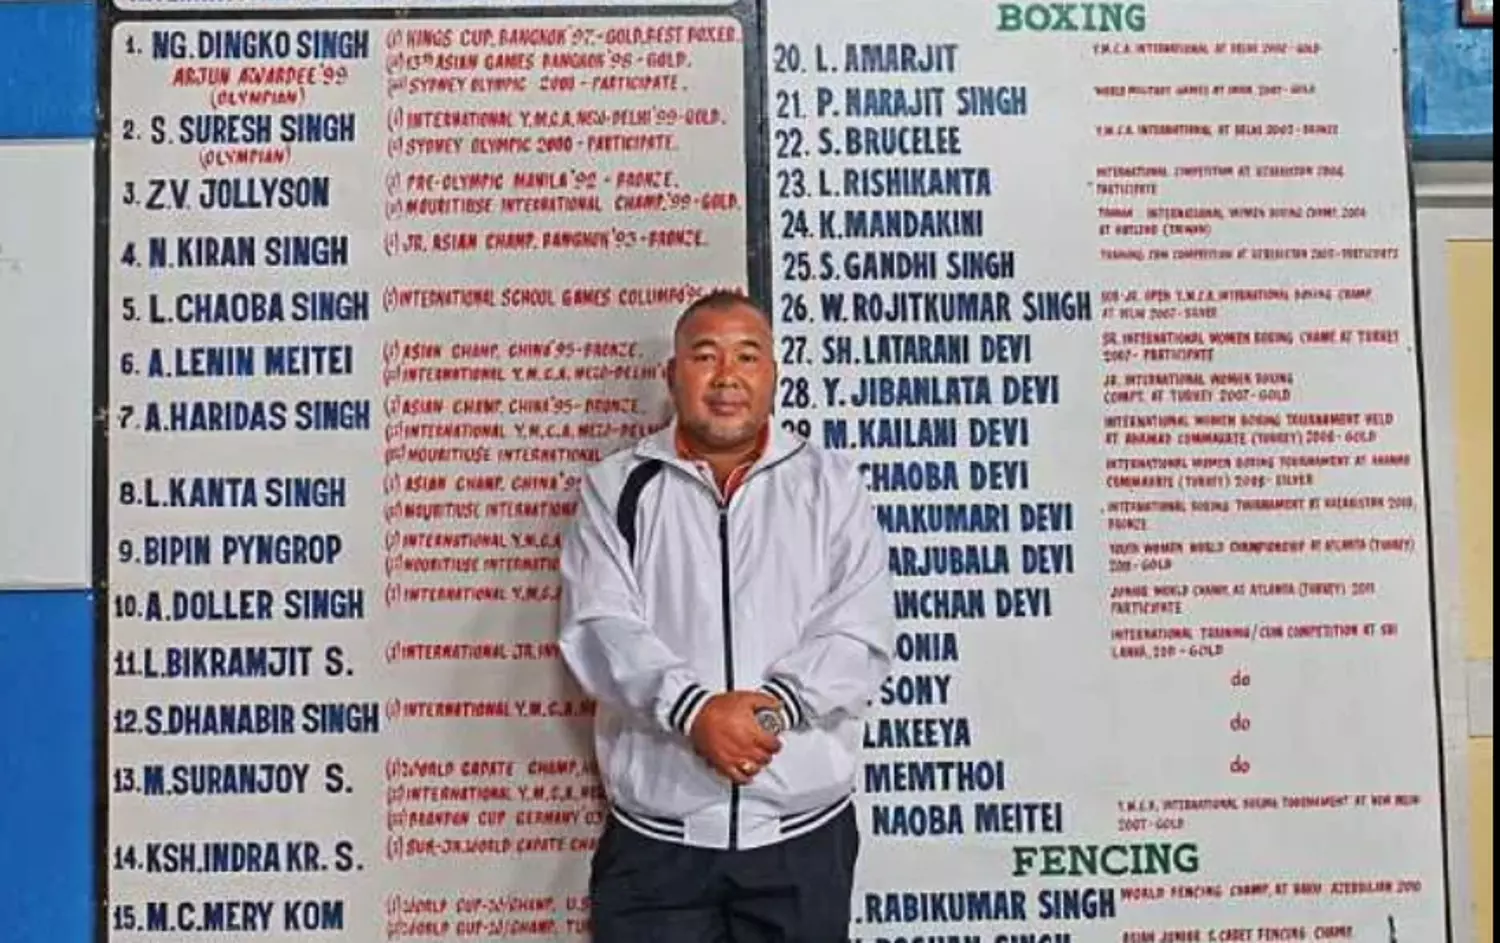 1. NG. DINGKO SINGH
ARJUN AWARDEE '99
(OLYMPIAN)
(I) KINGS CUP, BANGKOK '97.- GOLD, BEST BOXER.
(II) 13TH ASIAN GAMES BANGKOK '98 - GOLD.
(III) SYDNEY OLYMPIC 2000 - PARTICIPATE.
2. S. SURESH SINGH
(OLYMPIAN)
(I) INTERNATIONAL Y.M.C.A. NEW-DELHI '99-GOLD.
(II) SYDNEY OLYMPIC 2000 - PARTICIPATE.
3. Z.V. JOLLYSON
(I) PRE-OLYMPIC MANILA '92 - BRONZE.
(II) MOURITIUSE INTERNATIONAL CHAMP. '99-GOLD.
4. N. KIRAN SINGH
(I) JR. ASIAN CHAMP. BANGKOK '93-BRONZE.
5. L. CHAOBA SINGH
(I) INTERNATIONAL SCHOOL GAMES COLUMBO
6. A. LENIN MEITEI
(I) ASIAN CHAMP. CHINA '95-BRONZE.
(II) INTERNATIONAL Y.M.C.A. NEW-DELHI
7. A. HARIDAS SINGH
(I) ASIAN CHAMP. CHINA '95- BRONZE.
(II) INTERNATIONAL Y.M.C.A. NEW-DELHI
(III) MOURITIUSE INTERNATIONAL
8. L. KANTA SINGH
(I) ASIAN CHAMP. CHINA
(II) MOURITIUSE INTERNATIONAL
9. BIPIN PYNGROP
(I) INTERNATIONAL Y.M.C.A.
(II) MOURITIUSE INTERNATIO
10. A. DOLLER SINGH
(I) INTERNATIONAL Y.M.C.A
11. L. BIKRAMJIT S.
(I) INTERNATIONAL JR.
12. S. DHANABIR SINGH
(I) INTERNATIONAL Y.M.C.A.
13. M. SURANJOY S.
(I) WORLD CADATE CHAMP.
(II) INTERNATIONAL Y.M.C.A.
(III) BRANDON CUP GERMANY '03
14. KSH. INDRA KR. S.
(I) SUB-JR. WORLD CADATE CHA
15. M.C. MERY KOM
(I) WORLD CUP-20/CHAMP. U.S
WORLD CUP-20/CHAMP. TU
BOXING
20. L. AMARJIT
Y.M.C.A. INTERNATIONAL AT DELHI 2002 - GOLD
21. P. NARAJIT SINGH
WORLD MILITARY GAMES AT INDIA 2007 - GOLD
22. S. BRUCELEE
Y.M.C.A. INTERNATIONAL AT DELHI 2003 - BRONZE
23. L. RISHIKANTA
INTERNATIONAL COMPETITION AT UZBEKISTAN 2004
PARTICIPATE
24. K. MANDAKINI
TAIWAN INTERNATIONAL WOMEN BOXING CHAMP. 2004
(TAIWAN)
25. S. GANDHI SINGH
TRAINING CUM COMPETITION AT UZBEKISTAN 2005 - PARTICIPATE
26. W. ROJITKUMAR SINGH
SUB-JR. OPEN Y.M.C.A. INTERNATIONAL BOXING CHAMP.
AT DELHI 2007 - SILVER
27. SH. LATARANI DEVI
SR. INTERNATIONAL WOMEN BOXING CHAMP. AT TURKEY
2007 - PARTICIPATE
28. Y. JIBANLATA DEVI
JR. INTERNATIONAL WOMEN BOXING
COMPT. AT TURKEY 2007 - GOLD
29 M. KAILANI DEVI
INTERNATIONAL WOMEN BOXING TOURNAMENT HELD
AT AHAMAD COMMARATE (TURKEY) 2008 - GOLD
CHAOBA DEVI
INTERNATIONAL WOMEN BOXING TOURNAMENT AT AHAMAD
COMMARATE (TURKEY) 2008 - SILVER
NAKUMARI DEVI
INTERNATIONAL BOXING TOURNAMENT AT KAZAKISTAN 2010,
BRONZE
ARJUBALA DEVI
YOUTH WOMEN WORLD CHAMPIONSHIP AT ATLANTA (TURKEY)
2011 - GOLD
INCHAN DEVI
JUNIOR WORLD CHAMP. AT ATLANTA (TURKEY) 2011
PARTICIPATE
SONIA
INTERNATIONAL TRAINING/CUM COMPETITION AT SRI
LANKA, 2011 - GOLD
. SONY
do
LAKEEYA
do
MEMTHOI
do
NAOBA MEITEI
Y.M.C.A. INTERNATIONAL BOXING TOURNAMENT AT NEW DELHI
2007-GOLD
FENCING
. RABIKUMAR SINGH
WORLD FENCING CHAMP. AT BAKU AZERBAIJAN 2010
ROSHAN SINGH
ASIAN JUNIOR & CADET FENCING CHAMP